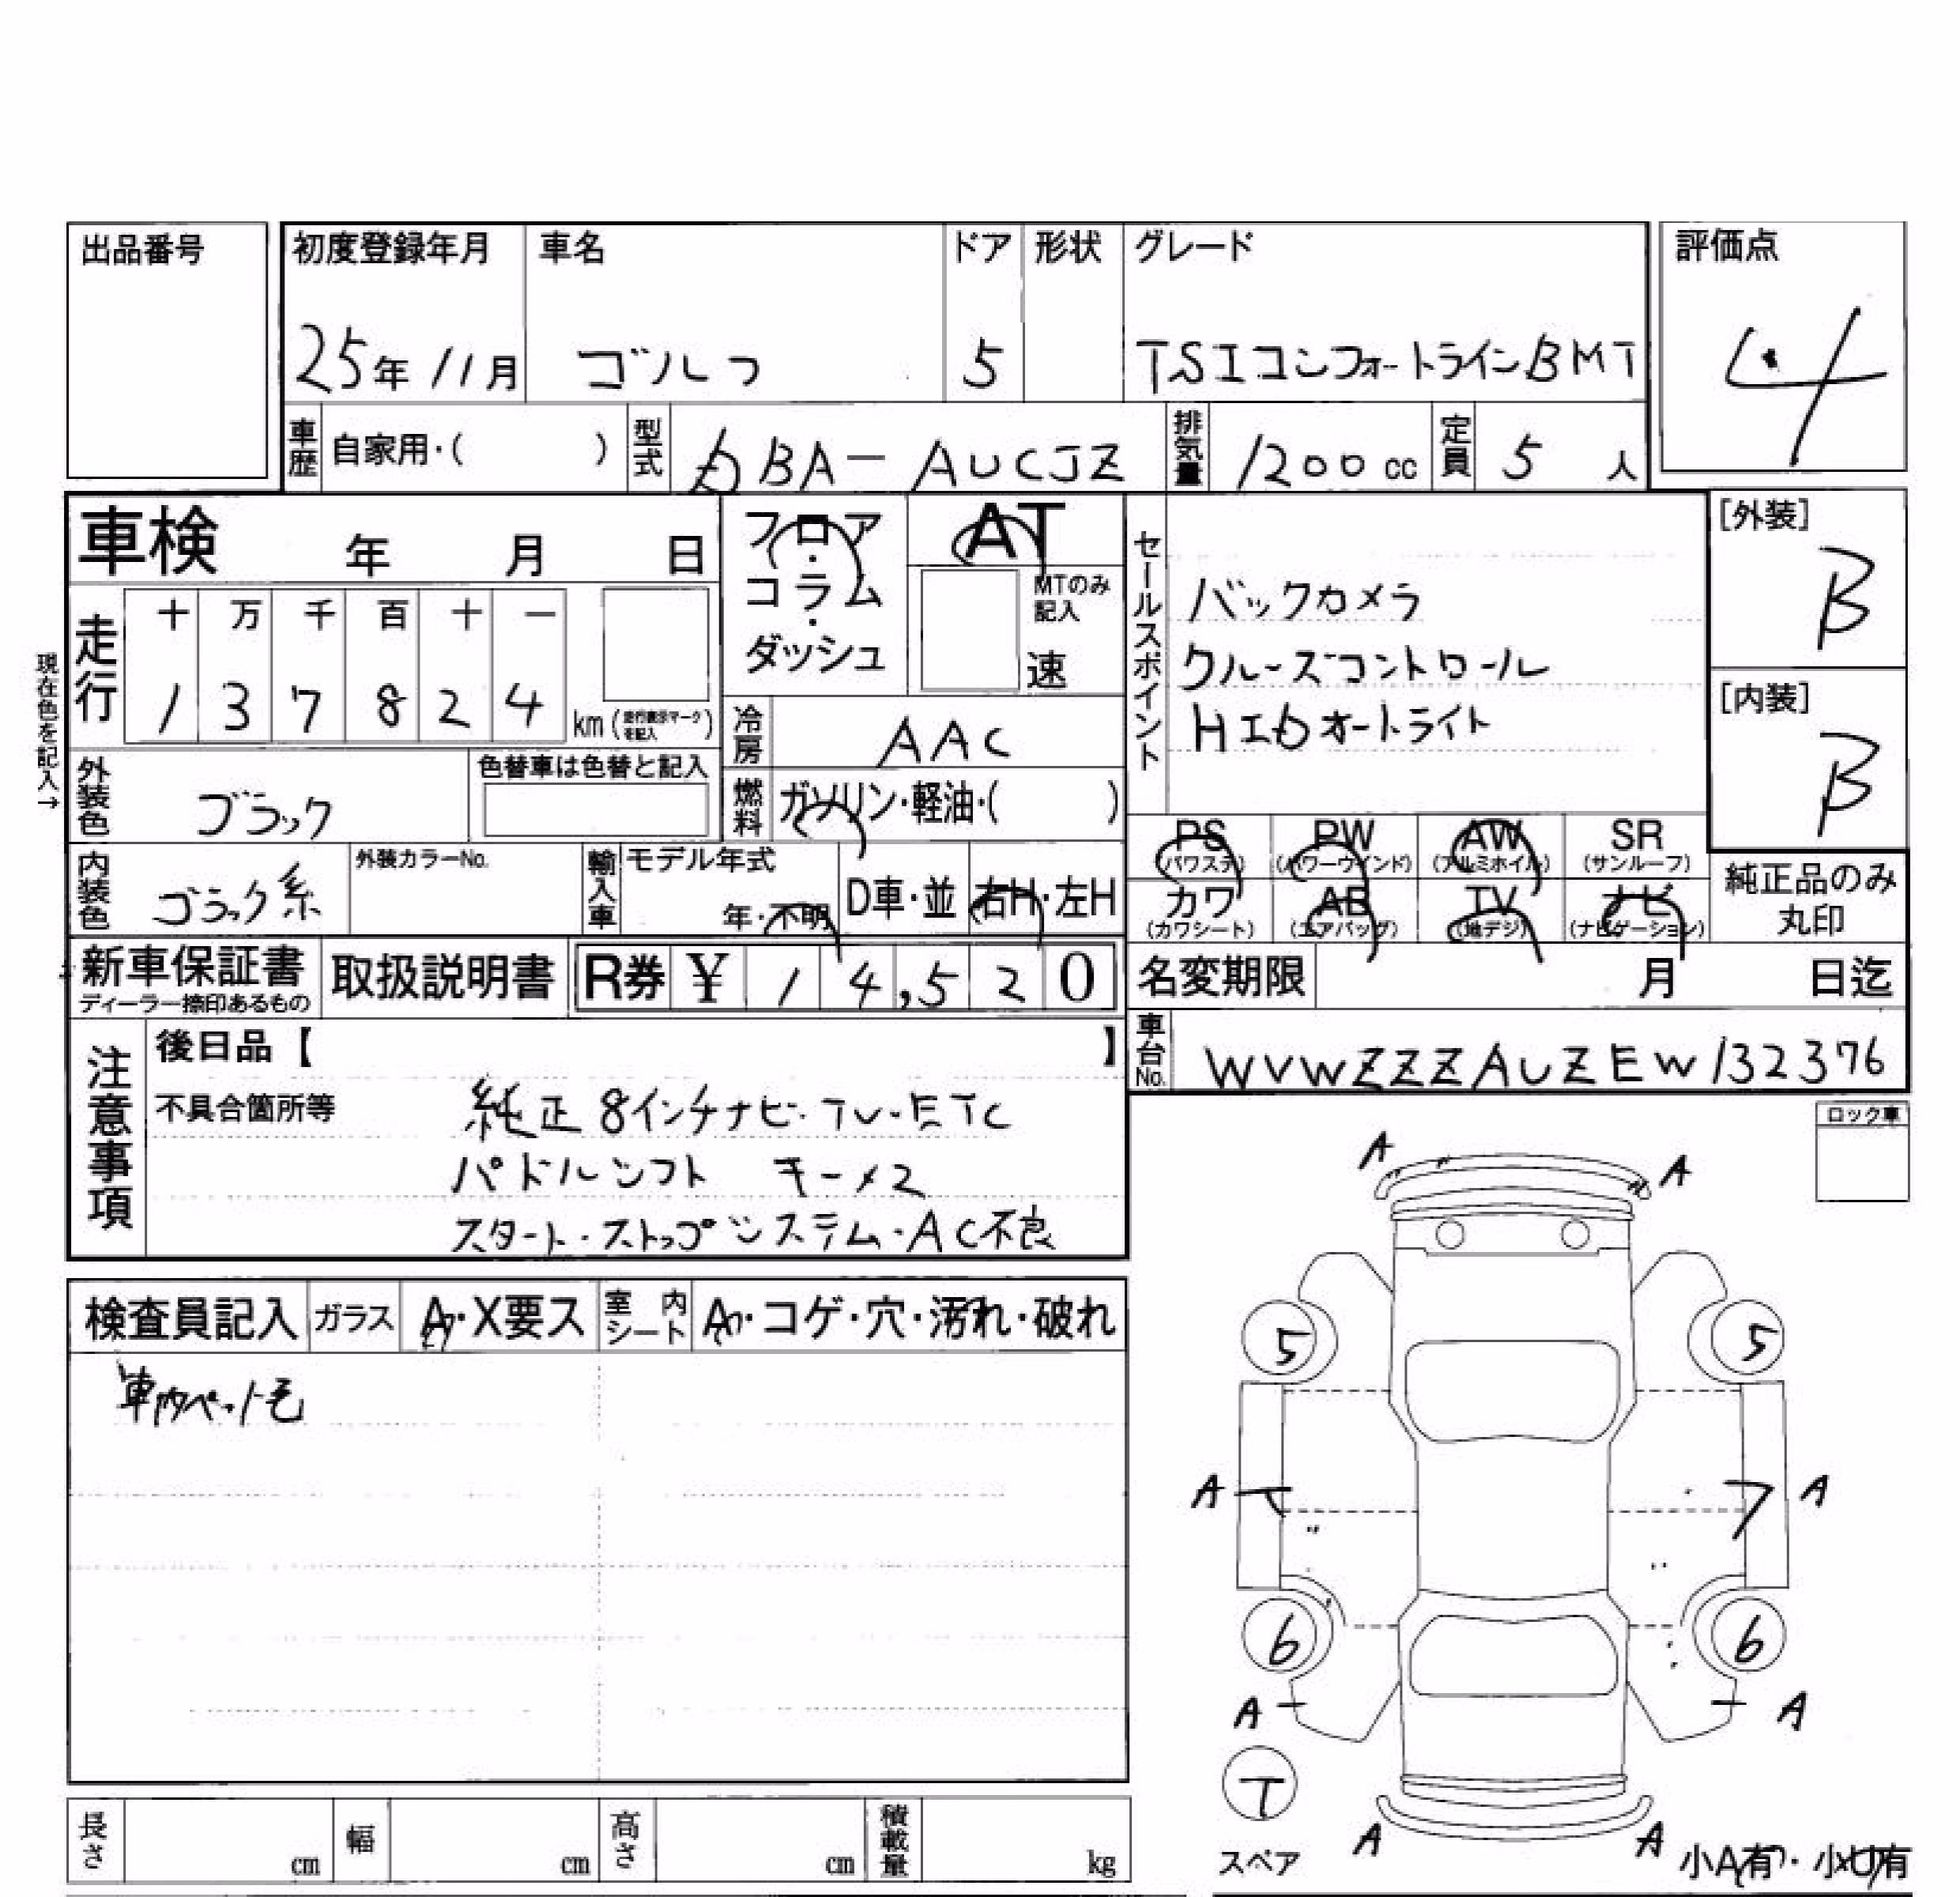 出品番号
初度登録年月 車名 ドア 形状 グレード 評価点
25年 11月 ゴルフ 5 TSIコンフォートラインBMT 4
車歴 自家用・( ) 型式 DBA-AUCJZ 排気量 1200cc 定員 5人
車検 年 月 日
フロア・コラム・ダッシュ
AT
MTのみ記入
速
セールスポイント
バックカメラ
クルーズコントロール
HIDオートライト
[外装]
B
[内装]
B
現在色を記入→
走行 十 万 千 百 十 一
1 3 7 8 2 4 km (走行表示マークを記入)
冷房 AAC
外装色 ブラック 色替車は色替と記入
燃料 ガソリン・軽油・( )
PS (パワステ) PW (パワーウインド) AW (アルミホイル) SR (サンルーフ)
カワ (カワシート) AB (エアバッグ) TV (地デジ) ナビ (ナビゲーション)
純正品のみ丸印
内装色 ブラック系 外装カラーNo. 輸入車 モデル年式 年・不明 D車・並 右H・左H
新車保証書 ディーラー捺印あるもの 取扱説明書 R券 ¥ 14,520
名変期限 月 日迄
車台No. WVWZZZAUZEW132376
注意事項
後日品【 】
不具合箇所等 純正8インチナビ・TV・ETC
パドルシフト キー×2
スタート・ストップシステム・AC不良
ロック車
検査員記入 ガラス A・X要ス 室内シート A・コゲ・穴・汚れ・破れ
車内ペット毛
A A
5 5
A A
6 6
A A
T
スペア
A A
小A有・小U有
長さ cm 幅 cm 高さ cm 積載量 kg